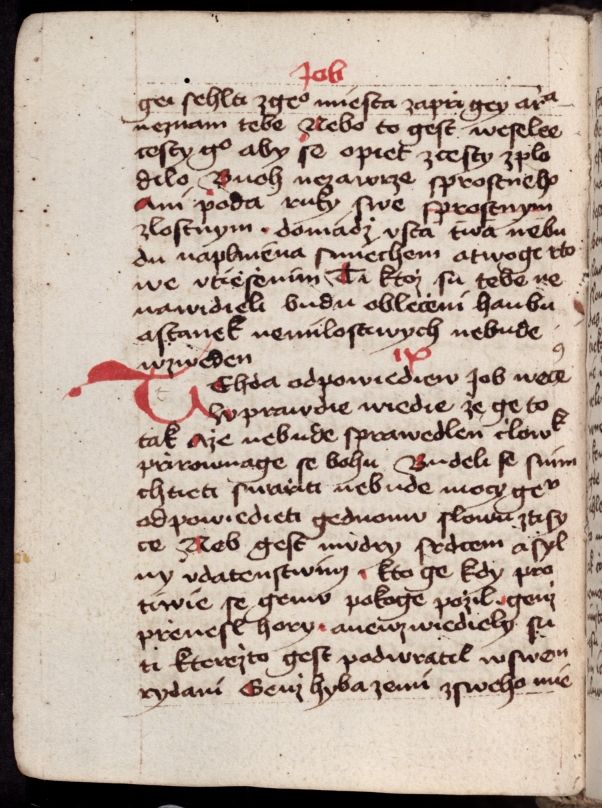 Job
gei sehlti zgeº miesta zapri gey arᵃ
neznam tebe Nebo to gest wesele
cesty gº aby se opiet zcesty zplo
dilo Buoh nezawrze sprostneho
Ani poda ruky swe sprostnym
zlostnym. domadz vsta twa nebu
du naplniena smiechem a twoge rto
we vtiessenim Ti ktoz su tebe ne
nawidieli budu obleceni hanbu
a stanek nemilostiwych nebude
wzweden ix
Tehda odpowiediew Job wece
wprawdie wiedie ze ge to
tak Aze nebude sprawedlen clowᵏ
prirownage se bohu Budeli se snim
chtieti swariti nebude mocy geᵘ
odpowiedieti gednomu slowu ztisy
ce Neb gest mudry srdcem a syl
ny vdatenstwim. kto ge kdy pro
tiwie se gemu pokoge pozil. genz
prenesl hory. a newzwiediely su
ti kterezto gest podwratil wswem
rydani Genz hyba zemi zsweho mie